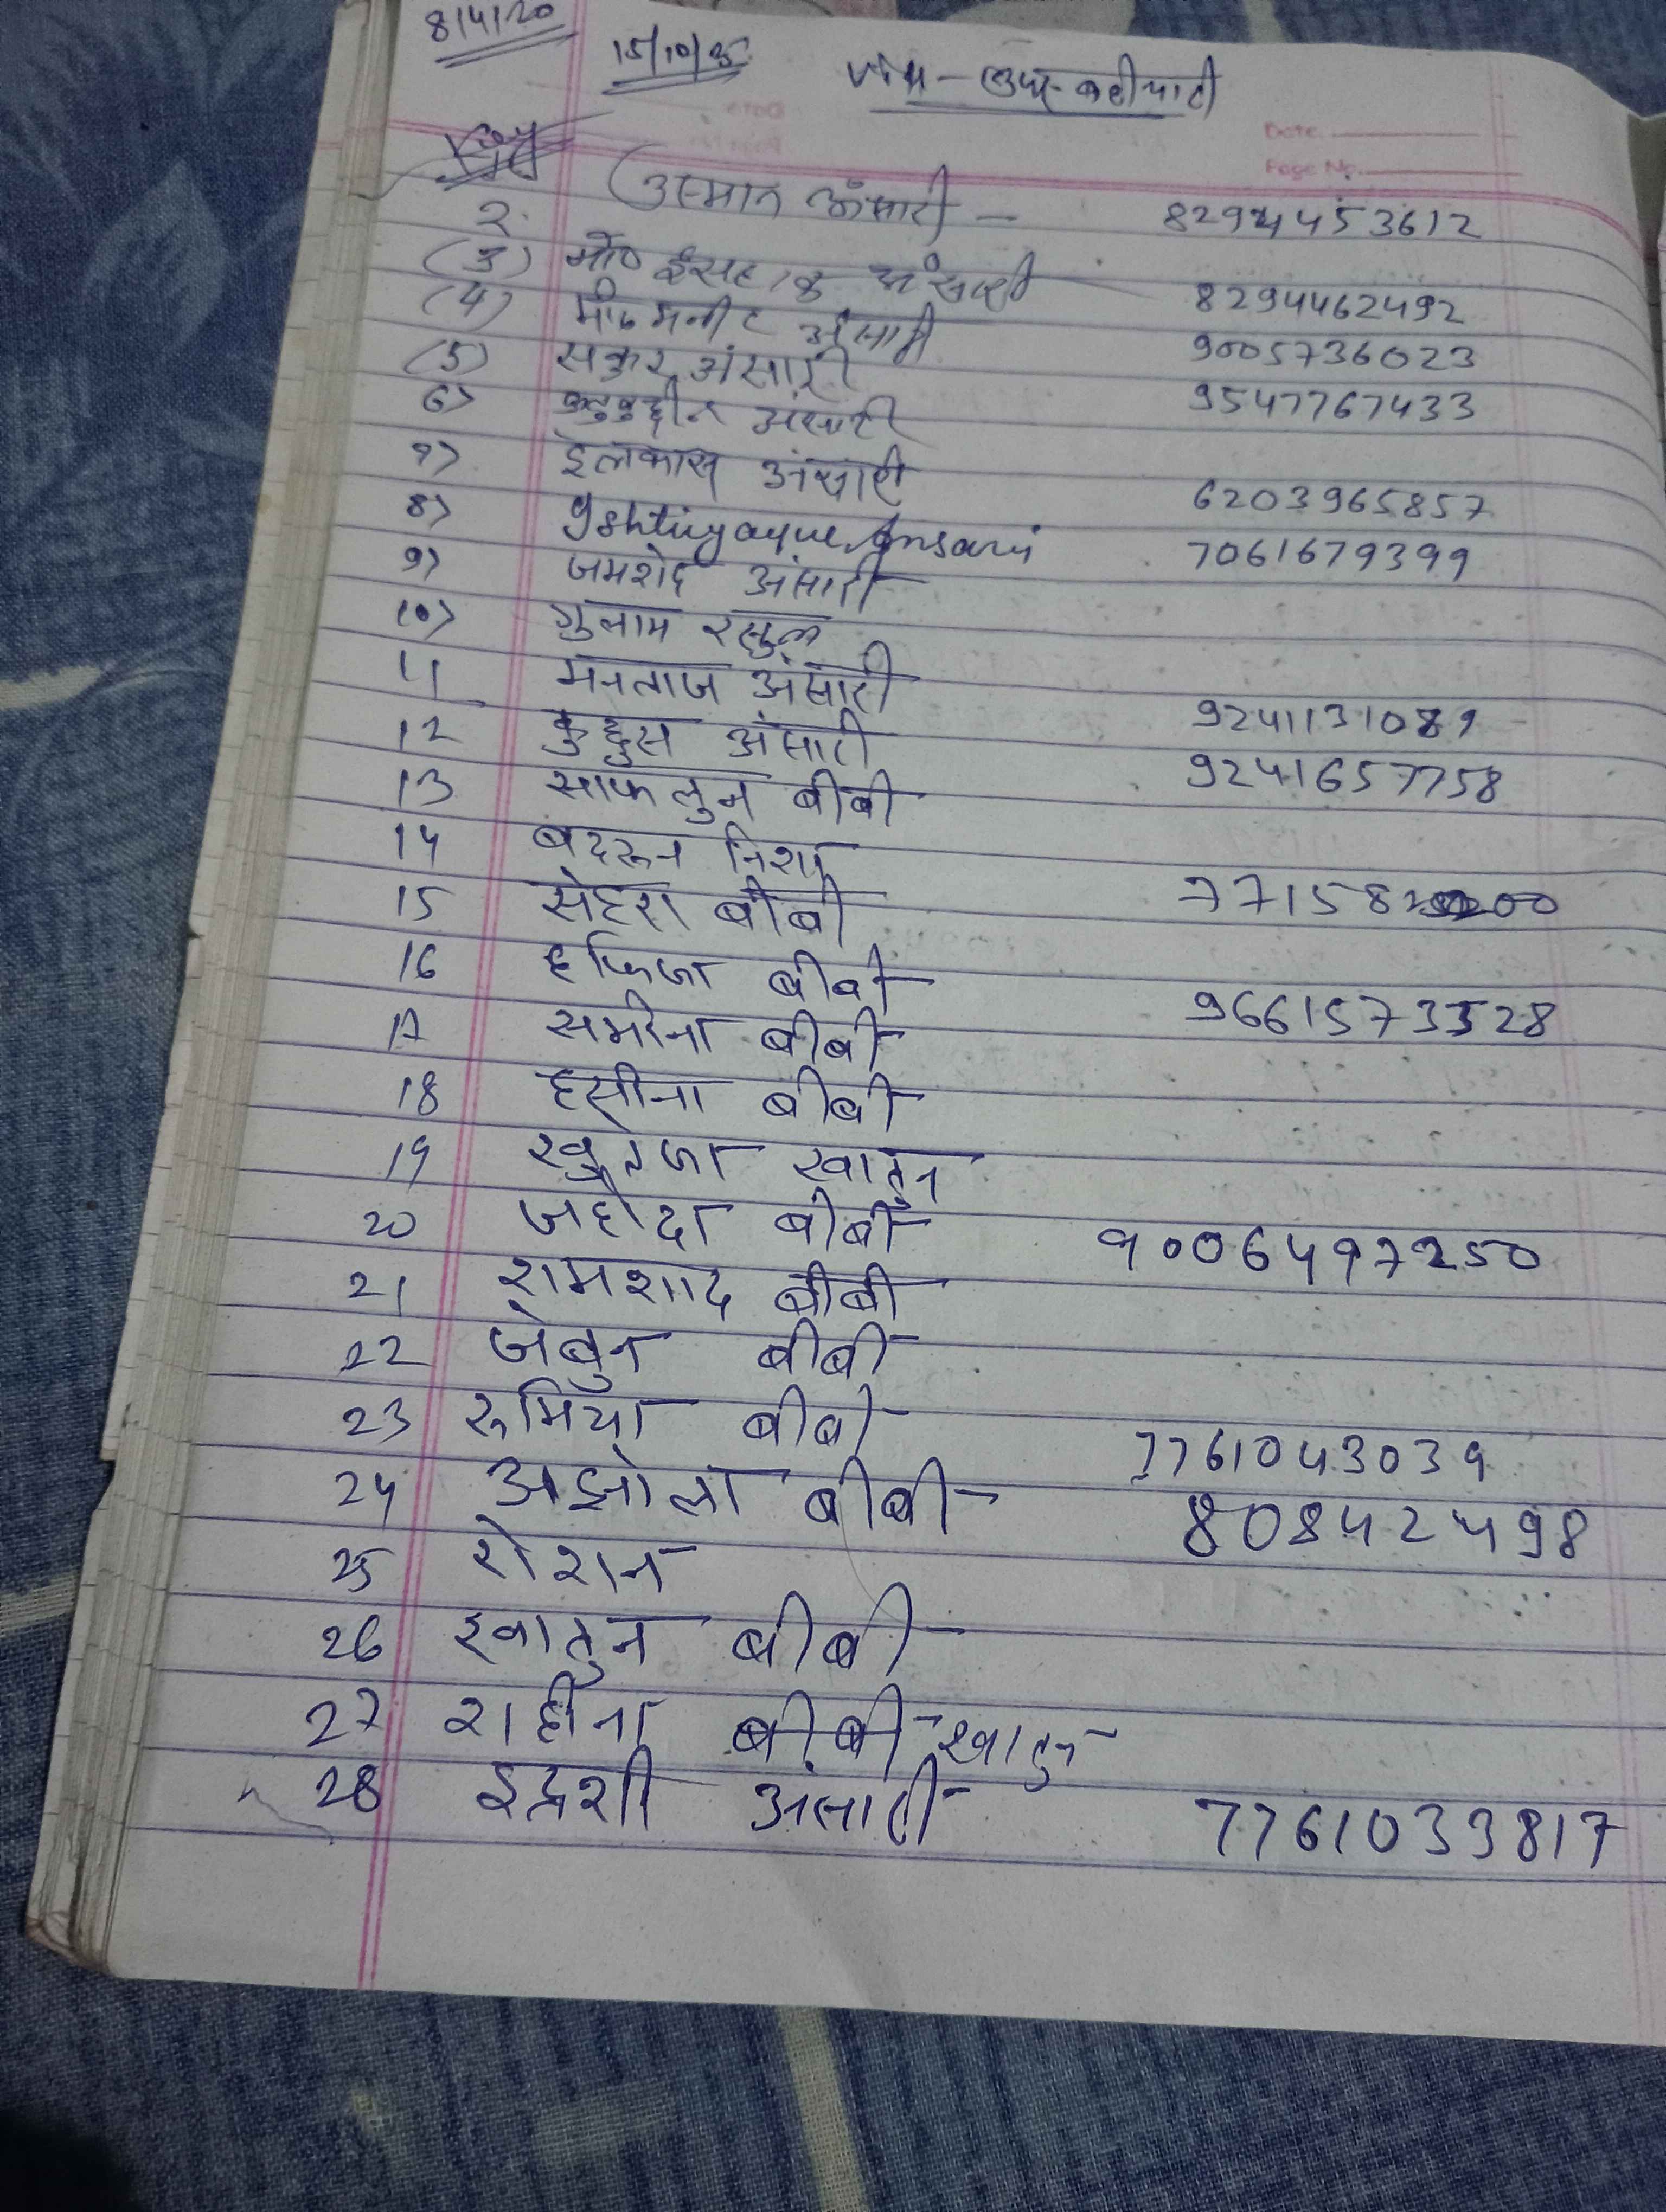 8/4/20
15/10/25
Date.
Page No.
२. उस्मान अंसारी - 8294453612
(3) मो० ईसहाक अंसारी 8294462492
(4) मो० अंसारी 9005736023
(5) सकुर अंसारी 9547767433
6) कुतुबुद्दीन अंसारी
7) इलकास अंसारी 6203965857
8) Ishtiyaque Ansari 7061679399
9) जमशेद अंसारी
10) गुलाम रसुल
11 मनताज अंसारी 9241131089
12 कुद्दुस अंसारी 9241657758
13 साफलुन बीबी
14 बदरून निशा
15 सेहरा बीबी
16 हफिजा बीबी 9661573528
17 समीना बीबी
18 हसीना बीबी
19 खुतेजा खातुन
20 जहीदा बीबी 9006497250
21 शमशाद बीबी
22 जेबुन बीबी
23 रूमिया बीबी 7761043039
24 अझोला बीबी 808424498
25 रोशन
26 खातुन बीबी
27 शहीना बीबी खातुन
28 इद्रशी अंसारी 7761033817